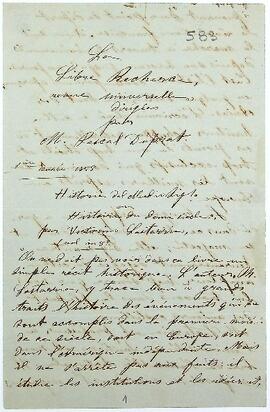 583
La
Libre Recherche,
revue universelle,
dirigée
par
M. Pascal Duprat
1855
Historia del Medio Siglo
ou
Histoire du demi siècle,
par Victorino Lastarria,
On ne doit pas voir dans ce livre un
simple récit historique. L'auteur, M.
Lastarria, y trace bien à grands
traits l'histoire des événements qui se
sont accomplis dans la première moitié
de ce siècle, soit en Europe, soit
dans l'Amérique indépendante. Mais
il ne s'arrête pas aux faits: il
étudie les institutions et les idées, et,
1